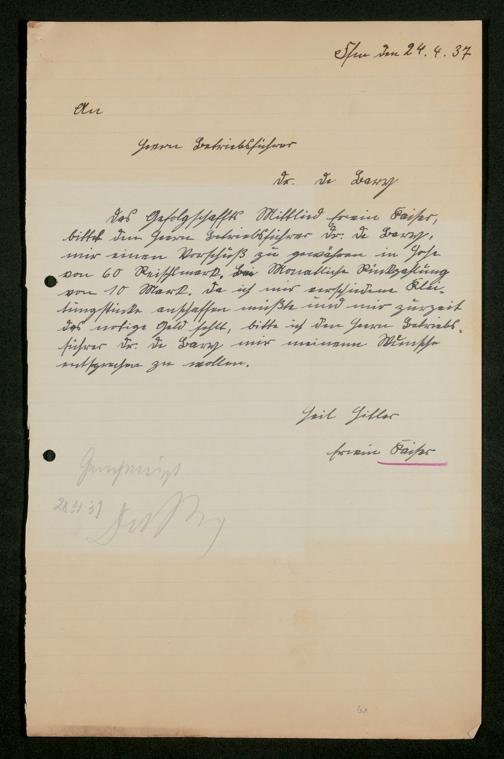 den 24. 4. 37
An
Herrn Betriebsführer
Dr. De Bary
Das Gefolgschafts Mittlied Erwin Kaiser,
bittet den Herrn Betriebsführer Dr. de Bary,
mir einen Vorschuß zu gewähren in Höhe
von 60 Reichsmark. Bei Monatliche Rückzahlung
von 10 Mark. da ich mir verschiedene Klei-
tungstücke anschaffen mußte und mir zurzeit
das nötige Geld fehlt, bitte ich den Herrn Betriebs-
führer Dr. de Bary mir meinem Wunsche
entsprechen zu wollen.
Heil Hitler
Erwin Kaiser
Genehmigt
28.4.37
De Bary